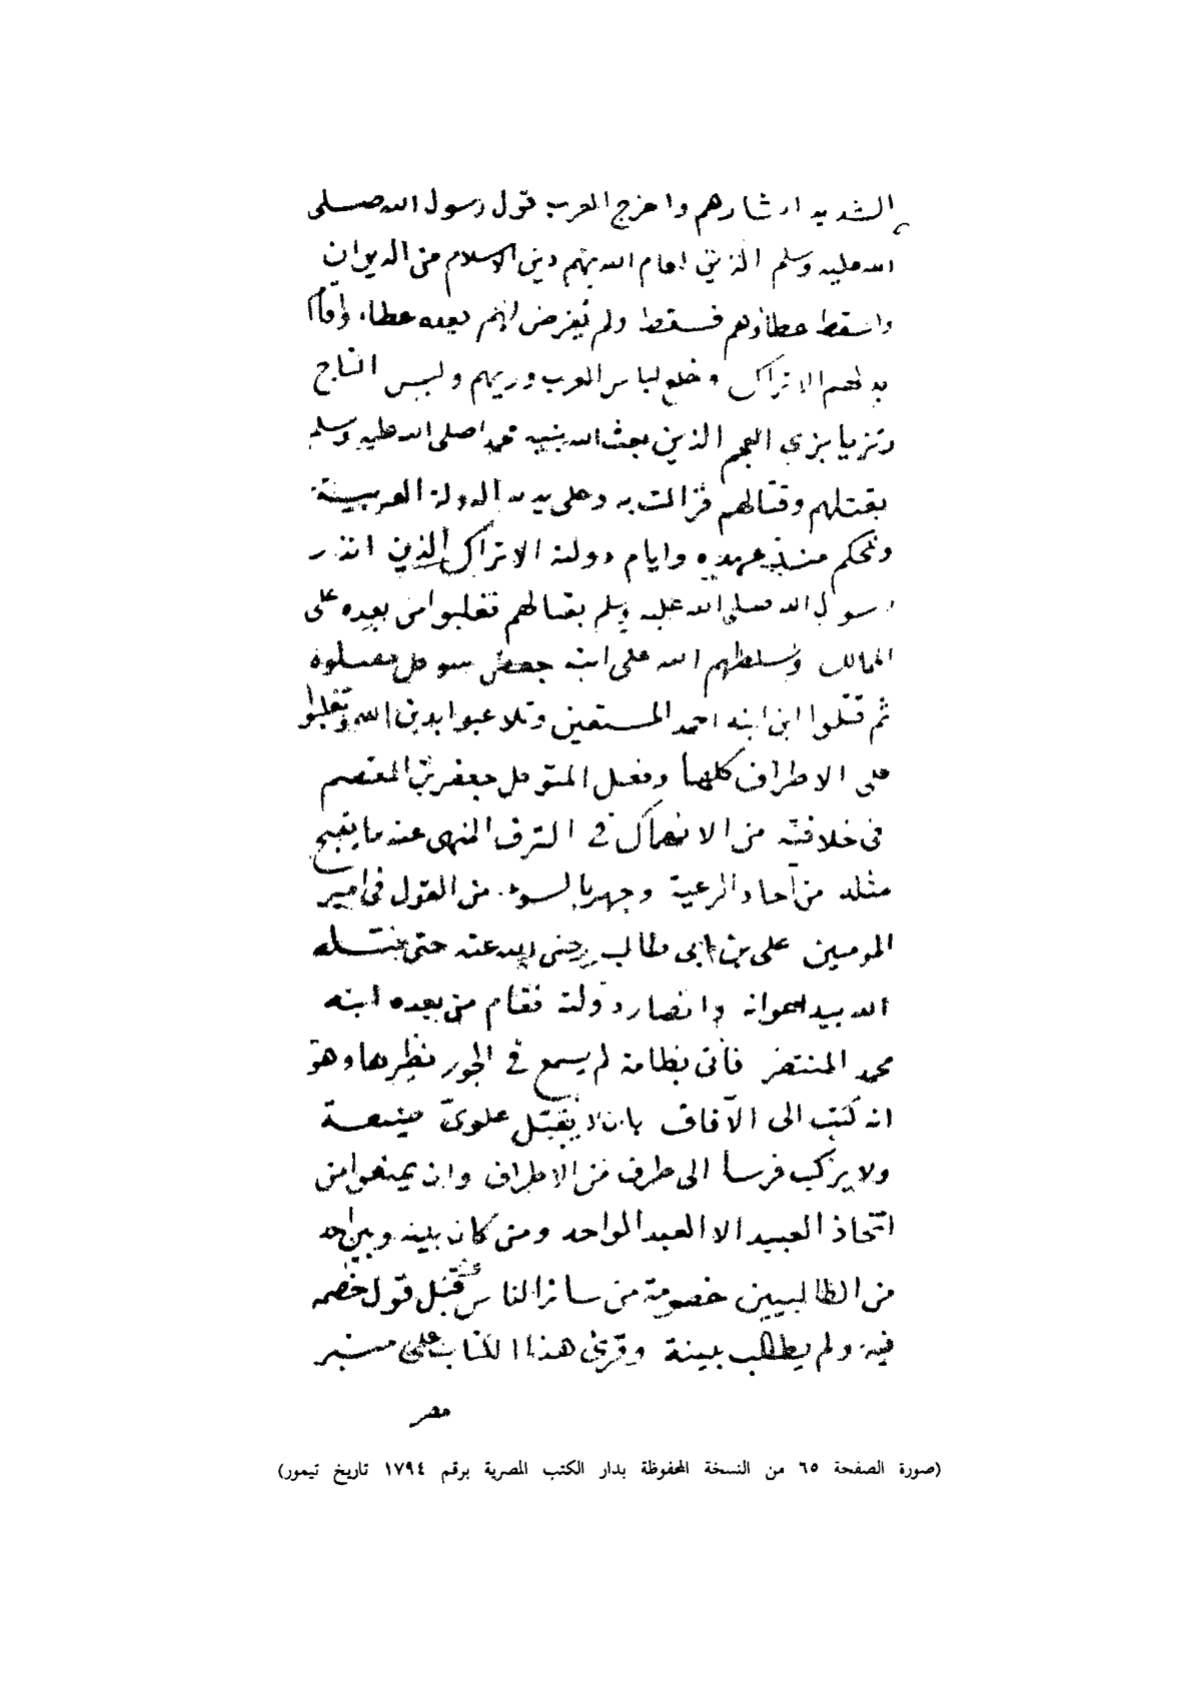 الشديد انتشارهم واخرج العرب قول رسول الله صلى
الله عليه وسلم الذين اقام الله بهم دين الاسلام من الديوان
واسقط عطاؤهم فسقط ولم يفرض لهم بعده عطاء واقام
بدلهم الاتراك وخلع لباس العرب وزيهم ولبس التاج
وتزيا بزي العجم الذين بعث الله نبيه محمدا صلى الله عليه وسلم
بقتلهم وقتالهم فزالت به وعلى يديه الدولة العربية
وتحكم منذ عهده وايام دولته الاتراك الذين انذر
رسول الله صلى الله عليه وسلم بقتالهم فغلبوا من بعده على
الممالك وسلطهم الله على ابنه جعفر متوكل فقتلوه
ثم قتلوا ابن ابنه احمد المستعين وتلاعبوا بدين الله وتغلبوا
على الاطراف كلها وفعل المتوكل جعفر بن المعتصم
في خلافته من الانهماك في الترف المنهى عنه ما يقبح
مثله من آحاد الرعية وجهر بالسوء من القول في امير
المومنين على بن ابى طالب رضى الله عنه حتى قتله
الله بيد اعوانه وانصار دولته فقام من بعده ابنه
محمد المنتصر فأتى بطامة لم يسمع في الجور نظيرها وهو
انه كتب الى الآفاق بان لا يقبل علوى ضيعة
ولا يركب فرسا الى طرف من الاطراف وان يمنعوا من
اتخاذ العبيد الا العبد الواحد ومن كان بينه وبين احد
من الطالبيين خصومة من سائر الناس قبل قول خصمه
فيه ولم يطالب ببينة وقرئ هذا الكتاب على منبر
مصر
(صورة الصفحة ٦٥ من النسخة المحفوظة بدار الكتب المصرية برقم ١٧٩٤ تاريخ تيمور)